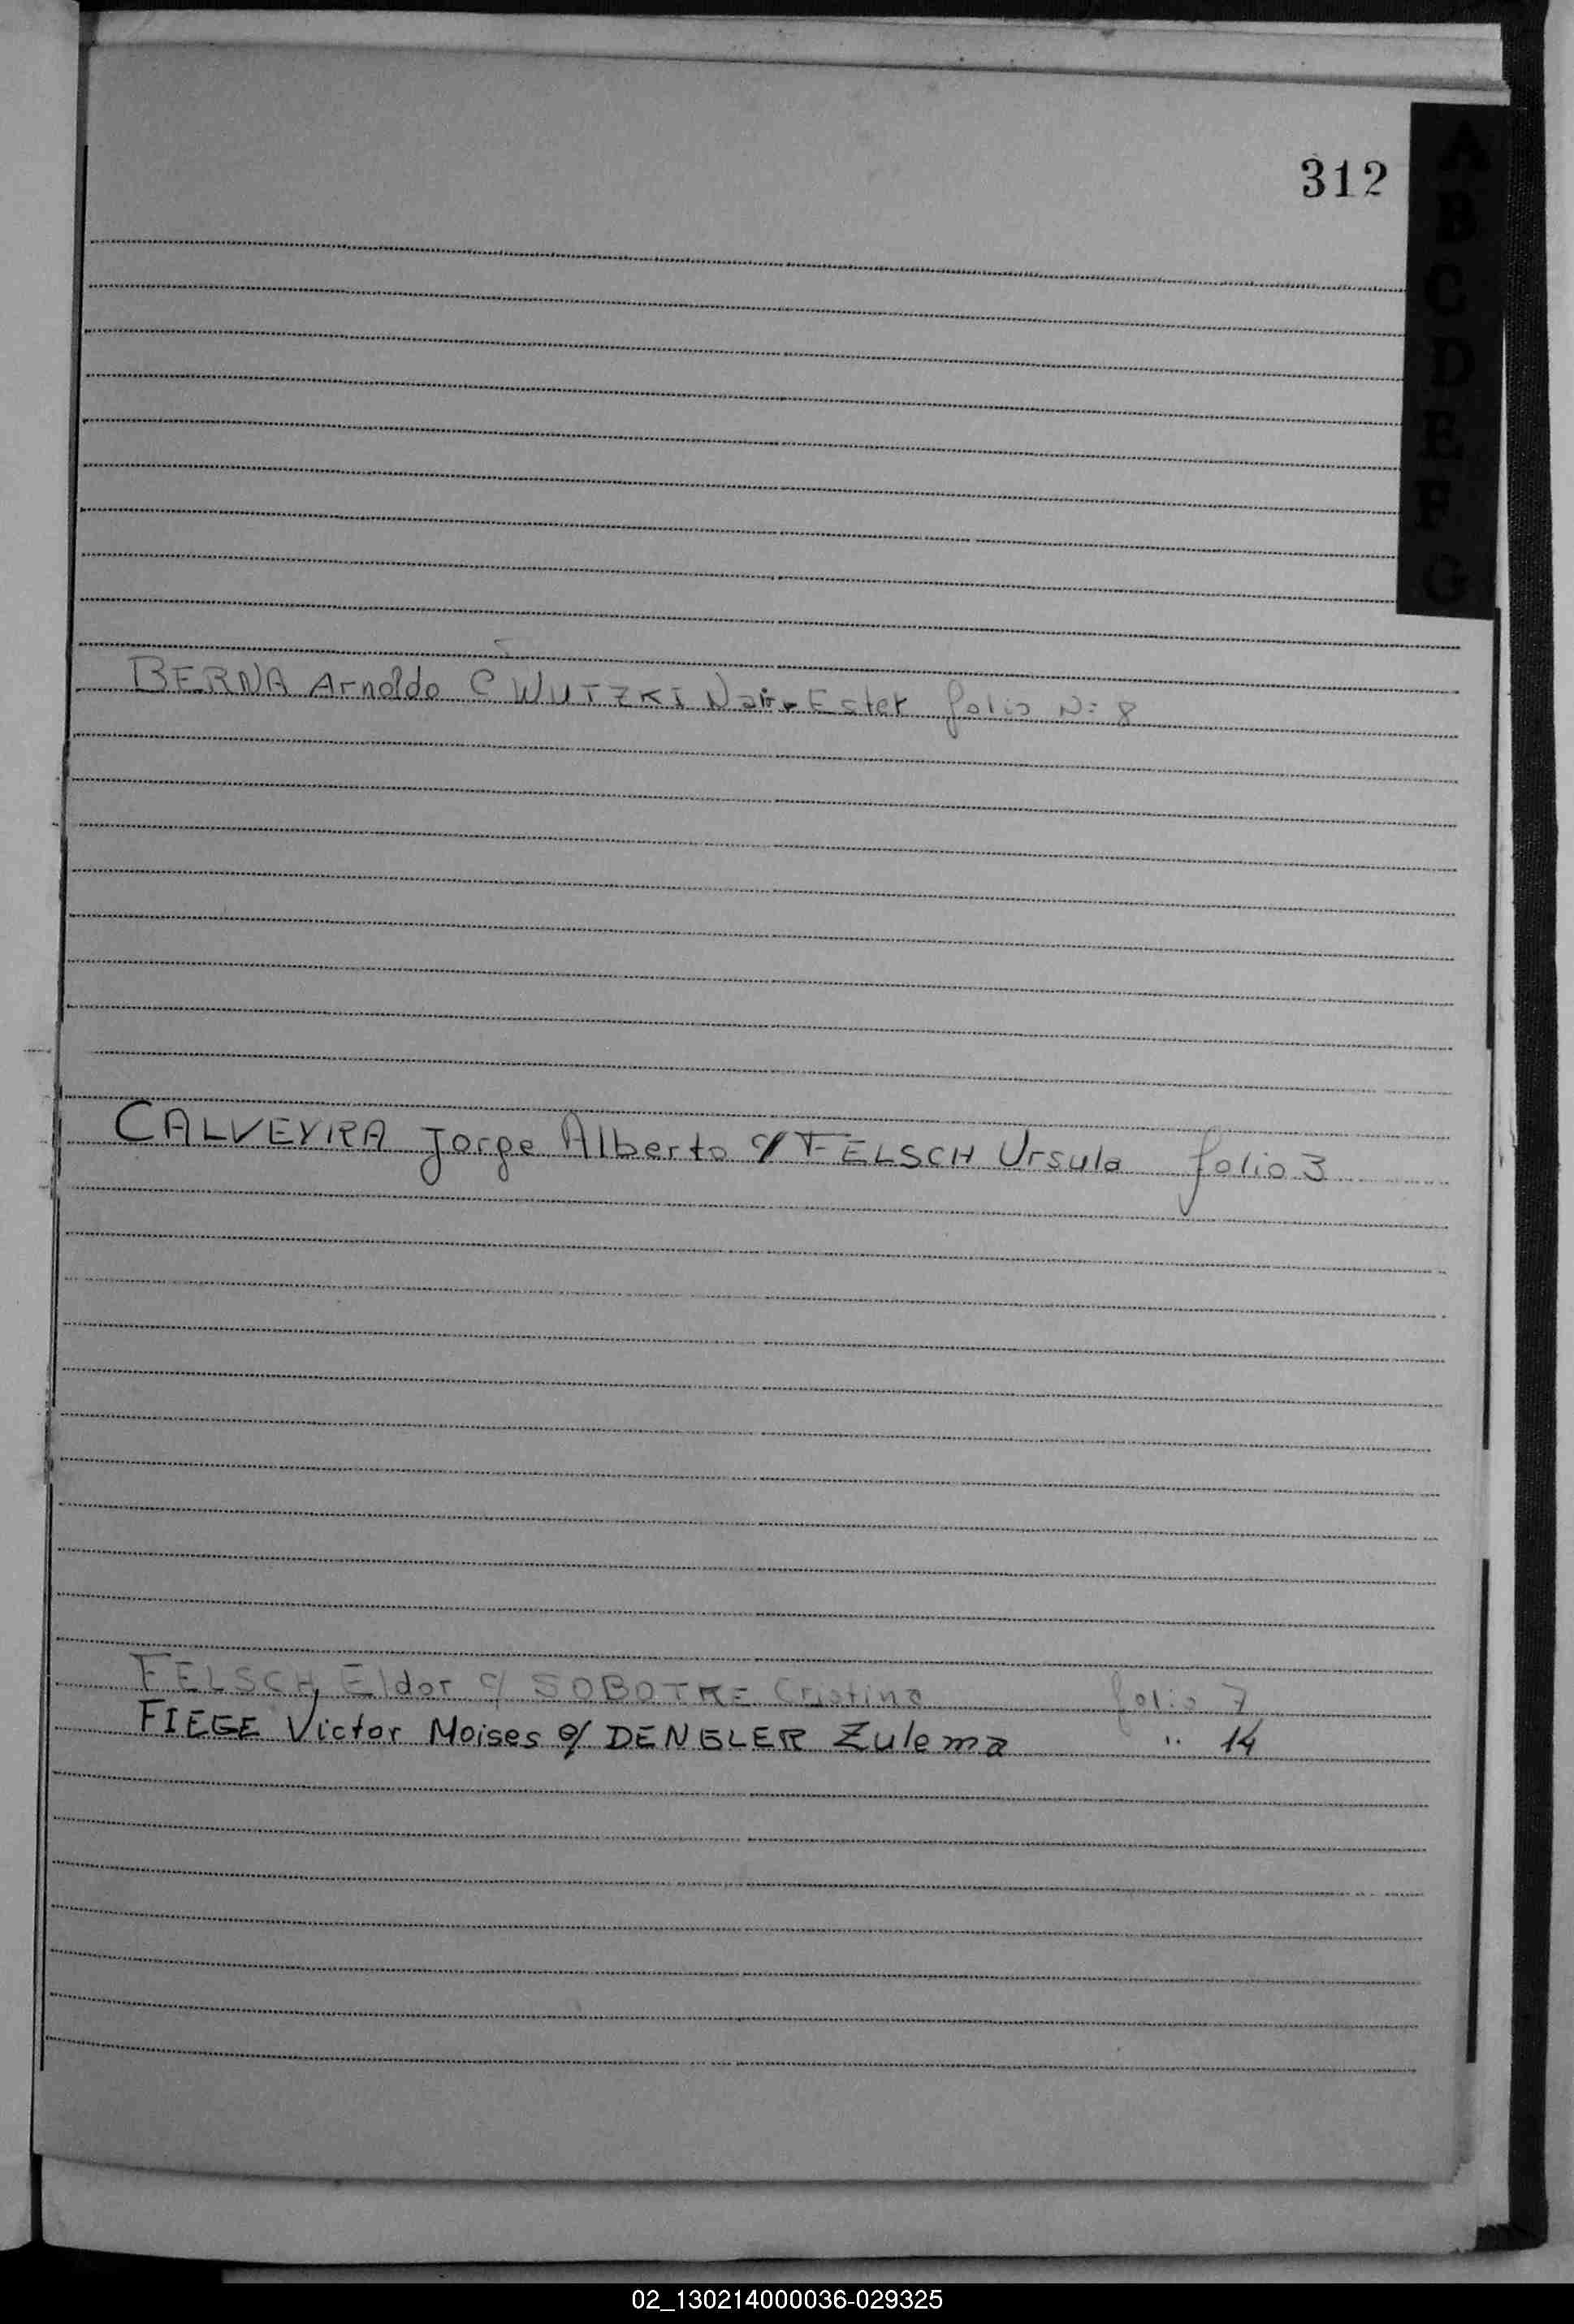 312
A
B
C
D
E
F
G
BERNA Arnoldo C WUTZKI Ester folio Nº 8
CALVEYRA Jorge Alberto c/ FELSCH Ursula folio 3
FELSCH, Eldor c/ SOBOTKE Cristina folio 7
FIEGE Victor Moises c/ DENGLER Zulema " 14
02_130214000036-029325